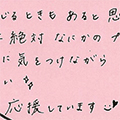 じるときも あると思
に絶対 なにかのプ
に気をつけながら
い
応援しています